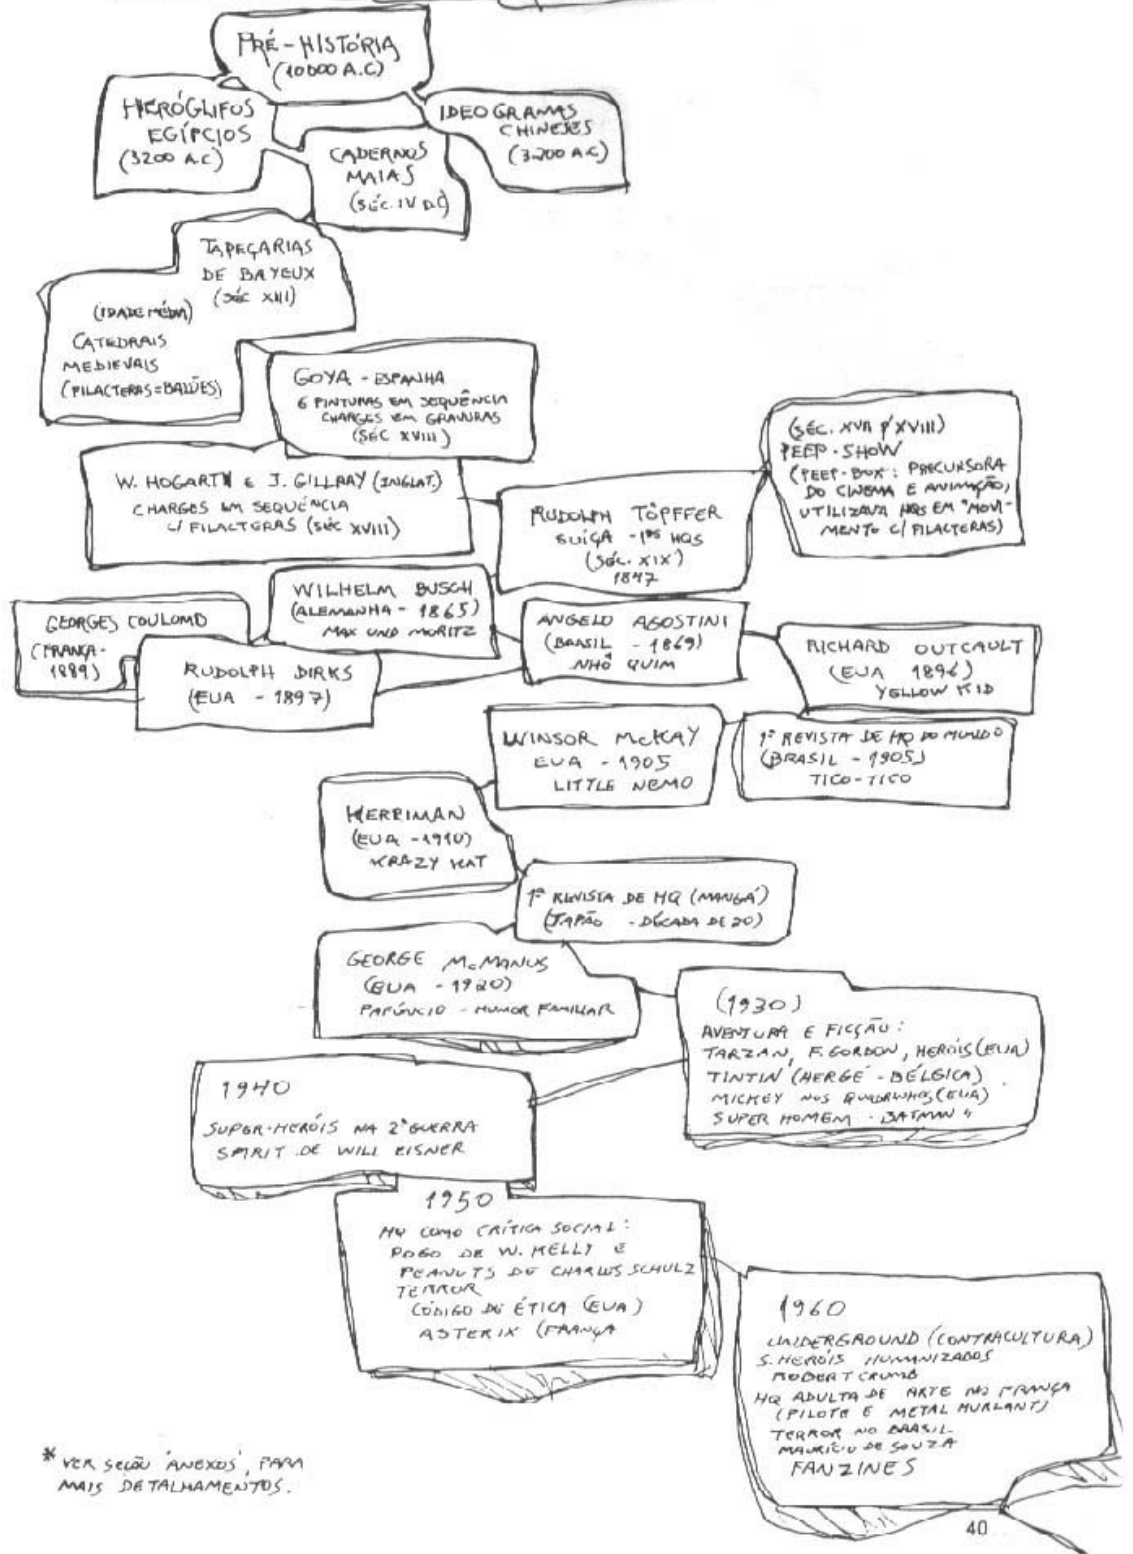 PRÉ-HISTÓRIA
(10000 A.C)
HIERÓGLIFOS
EGÍPCIOS
(3200 A.C)
IDEOGRAMAS
CHINESES
(3200 A.C)
CADERNOS
MAIAS
(SÉC. IV D.C)
TAPEÇARIAS
DE BAYEUX
(SÉC XIII)
(IDADE MÉDIA)
CATEDRAIS
MEDIEVAIS
(FILACTERAS=BALÕES)
GOYA - ESPANHA
6 PINTURAS EM SEQUÊNCIA
CHARGES EM GRAVURAS
(SÉC XVIII)
W. HOGARTH E J. GILLRAY (INGLAT.)
CHARGES EM SEQUÊNCIA
C/ FILACTERAS (SÉC XVIII)
(SÉC. XVII P/ XVIII)
PEEP-SHOW
(PEEP-BOX: PRECURSORA
DO CINEMA E ANIMAÇÃO,
UTILIZAVA HQS EM "MOVI-
MENTO C/ FILACTERAS)
RUDOLPH TÖPFFER
SUÍÇA - 1ªS HQS
(SÉC. XIX)
1847
WILHELM BUSCH
(ALEMANHA - 1865)
MAX UND MORITZ
GEORGES COULOMD
(FRANÇA-
1889)
RUDOLPH DIRKS
(EUA - 1897)
ANGELO AGOSTINI
(BRASIL - 1869)
NHÔ QUIM
RICHARD OUTCAULT
(EUA 1896)
YELLOW KID
WINSOR McKAY
EUA - 1905
LITTLE NEMO
1ª REVISTA DE HQ DO MUNDO
(BRASIL - 1905)
TICO-TICO
HERRIMAN
(EUA - 1910)
KRAZY KAT
1ª REVISTA DE HQ (MANGÁ)
(JAPÃO - DÉCADA DE 20)
GEORGE McMANUS
(EUA - 1920)
PAFÚNCIO - HUMOR FAMILIAR
(1930)
AVENTURA E FICÇÃO:
TARZAN, F. GORDON, HERÓIS (EUA)
TINTIN (HERGÉ - BÉLGICA)
MICKEY NOS QUADRINHOS (EUA)
SUPER HOMEM - BATMAN "
1940
SUPER-HERÓIS NA 2ª GUERRA
SPIRIT DE WILL EISNER
1950
HQ COMO CRÍTICA SOCIAL:
POGO DE W. KELLY E
PEANUTS DE CHARLES SCHULZ
TERROR
CÓDIGO DE ÉTICA (EUA)
ASTERIX (FRANÇA
1960
UNDERGROUND (CONTRACULTURA)
S. HERÓIS HUMANIZADOS
ROBERT CRUMB
HQ ADULTA DE ARTE NA FRANÇA
(PILOTE E METAL HURLANT)
TERROR NO BRASIL
MAURÍCIO DE SOUZA
FANZINES
* VER SEÇÃO 'ANEXOS', PARA
MAIS DETALHAMENTOS.
40